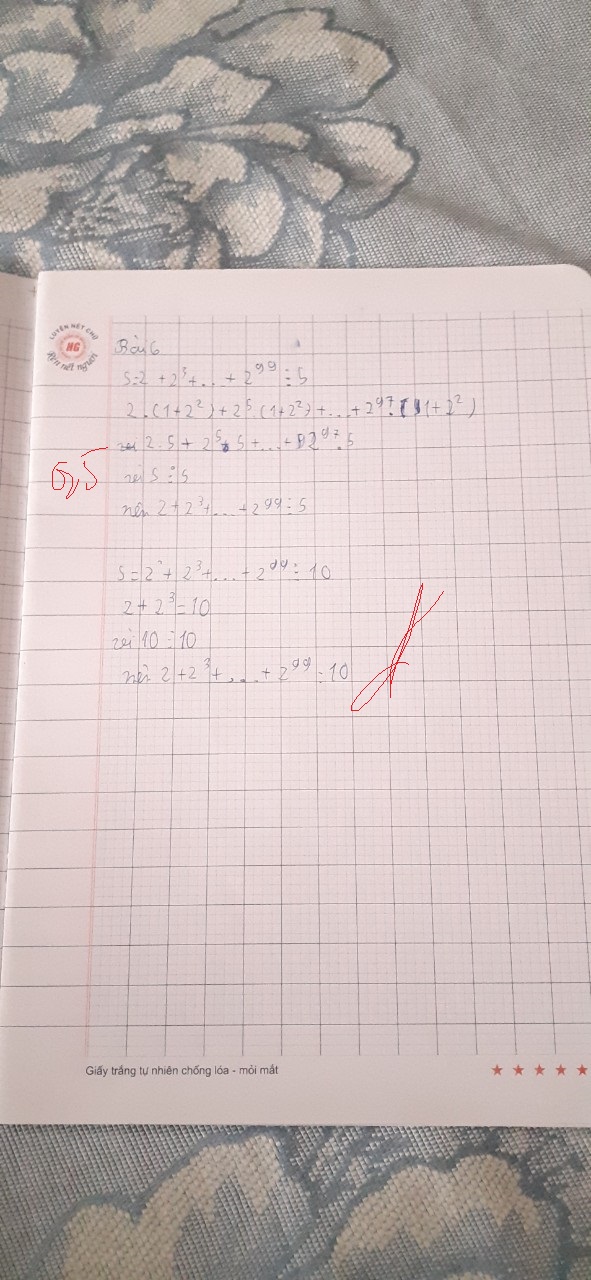 LUYỆN NÉT CHỮ
HG
Rèn nết người
Bài 6
S=2+2³+...+2⁹⁹⋮5
2.(1+2²)+2⁵.(1+2²)+...+2⁹⁷.(1+2²)
2.5+2⁵.5+...+2⁹⁷.5
0,5
5⋮5
nên 2+2³+...+2⁹⁹⋮5
S=2+2³+...+2⁹⁹⋮10
2+2³=10
vì 10⋮10
nên 2+2³+...+2⁹⁹⋮10
Giấy trắng tự nhiên chống lóa - mỏi mắt